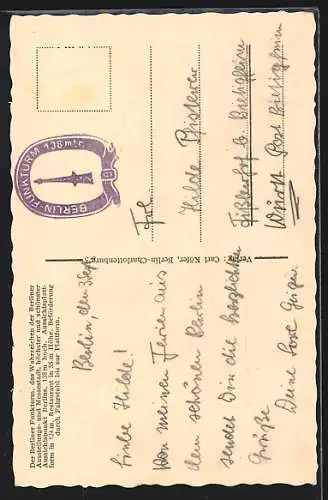 Der Berliner Funkturm, das Wahrzeichen der Berliner
Ausstellungs- und Messestadt, höchster und schönster
Aussichtspunkt Berlins, 138 m hoch. Aussichtsplatt-
form in 124 m, Restaurant in 55 m Höhe. Beförderung
durch Fahrstuhl bis zur Plattform.
Berlin, den 3. Sept.
Liebe Hilde!
Von meinen Ferien aus
dem schönen Berlin
sendet Dir die herzlichsten
Grüße
Deine
Verlag: Carl Köler, Berlin-Charlottenburg 5
BERLIN-FUNKTURM 138 mtr.
Frl.
Hilde
b. Bietigheim
Württ. Post Bietigheim